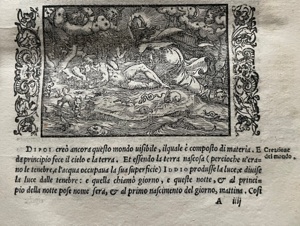 DIPOI creò ancora questo mondo uisibile, ilquale è composto di materia. E Creatione
da principio fece il cielo e la terra. Et essendo la terra nascosa (percioche n'era- del mondo.
no le tenebre, e l'acqua occupaua la sua superficie) IDDIO produsse la luce, e diuise
la luce dalle tenebre: e quella chiamò giorno, e queste notte, & al princi-
pio della notte pose nome sera, & al primo nascimento del giorno, mattina. Cosi
A iiij